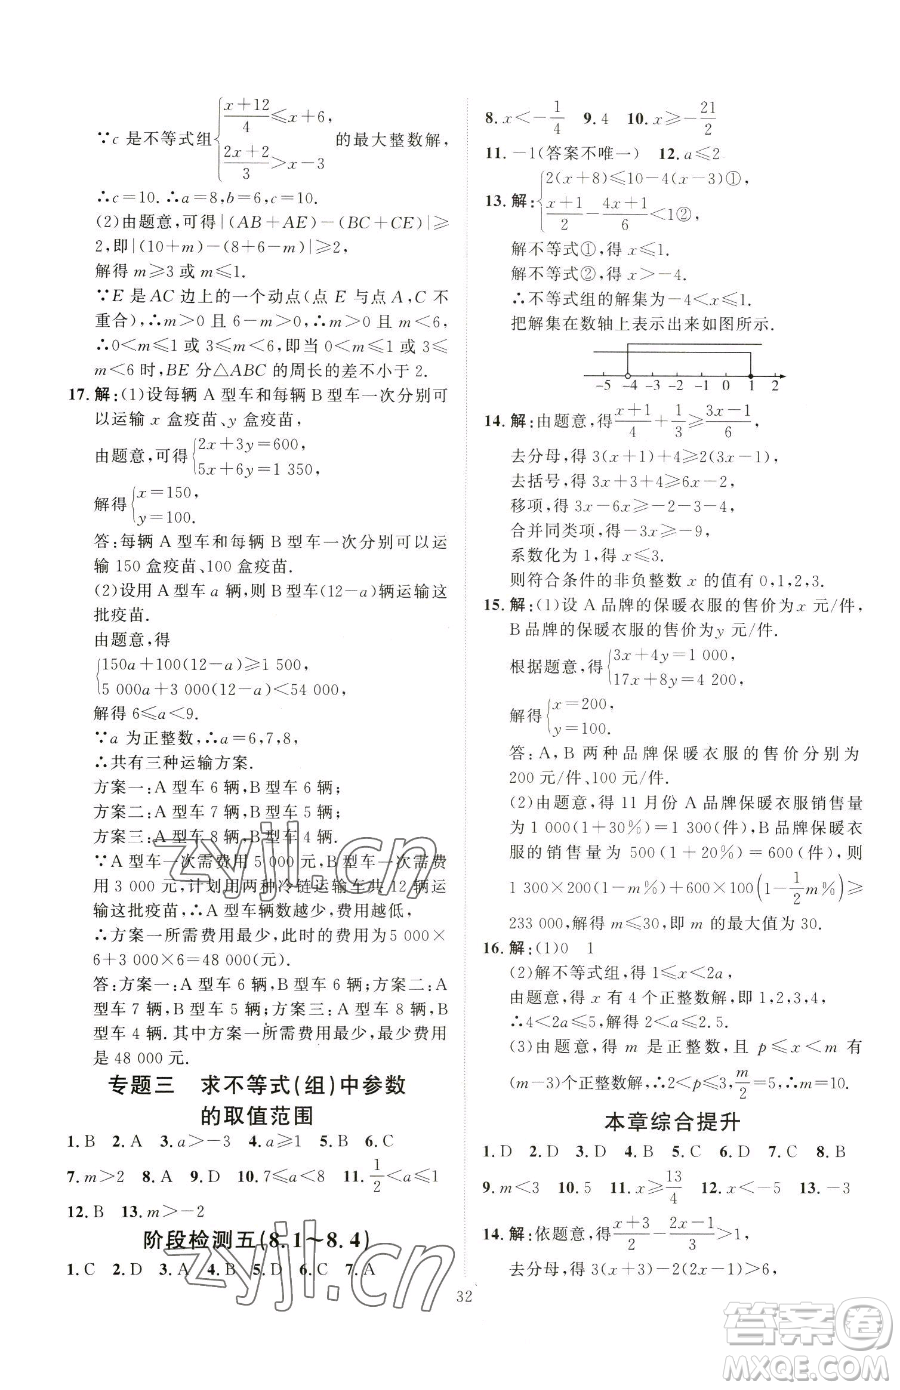 ∵c 是不等式组{(x+12)/4≤x+6, (2x+2)/3>x−3 的最大整数解,
∴c=10.∴a=8,b=6,c=10.
(2)由题意,可得|(AB+AE)−(BC+CE)|≥
2,即|(10+m)−(8+6−m)|≥2,
解得 m≥3 或 m≤1.
∵E 是 AC 边上的一个动点(点 E 与点 A,C 不
重合),∴m>0 且 6−m>0,∴m>0 且 m<6,
∴0<m≤1 或 3≤m<6,∴当 0<m≤1 或 3≤
m<6 时,BE 分△ABC 的周长的差不小于 2.
17. 解:(1)设每辆 A 型车和每辆 B 型车一次分别可
以运输 x 盒疫苗、y 盒疫苗,
由题意,可得{2x+3y=600,
5x+6y=1 350,
解得{x=150,
y=100.
答:每辆 A 型车和每辆 B 型车一次分别可以运
输 150 盒疫苗、100 盒疫苗.
(2)设用 A 型车 a 辆,则 B 型车(12−a)辆运输这
批疫苗.
由题意,得
{150a+100(12−a)≥1 500,
5 000a+3 000(12−a)<54 000,
解得 6≤a<9.
∵a 为正整数,∴a=6,7,8,
∴共有三种运输方案.
方案一:A 型车 6 辆,B 型车 6 辆;
方案二:A 型车 7 辆,B 型车 5 辆;
方案三:A 型车 8 辆,B 型车 4 辆.
∵A 型车一次需费用 5 000 元,B 型车一次需费
用 3 000 元,计划用两种冷链运输车共 12 辆运输
这批疫苗,∴A 型车辆数越少,费用越低,
∴方案一所需费用最少,此时的费用为 5 000×
6+3 000×6=48 000(元).
答:方案一:A 型车 6 辆,B 型车 6 辆;方案二:A
型车 7 辆,B 型车 5 辆;方案三:A 型车 8 辆,B
型车 4 辆.其中方案一所需费用最少,最少费用
是 48 000 元.
专题三 求不等式(组)中参数
的取值范围
1. B 2. A 3. a>−3 4. a≥1 5. B 6. C
7. m>2 8. A 9. D 10. 7≤a<8 11. 1/2<a≤1
12. B 13. m>−2
阶段检测五(8.1～8.4)
1. C 2. D 3. A 4. B 5. D 6. C 7. A
8. x<−1/4 9. 4 10. x≥−21/2
11. −1(答案不唯一) 12. a≤2
13. 解:{2(x+8)≤10−4(x−3)①,
(x+1)/2−(4x+1)/6<1②,
解不等式①,得 x≤1.
解不等式②,得 x>−4.
∴不等式组的解集为−4<x≤1.
把解集在数轴上表示出来如图所示.
−5 −4 −3 −2 −1 0 1 2
14. 解:由题意,得(x+1)/4+1/3≥(3x−1)/6,
去分母,得 3(x+1)+4≥2(3x−1),
去括号,得 3x+3+4≥6x−2,
移项,得 3x−6x≥−2−3−4,
合并同类项,得−3x≥−9,
系数化为 1,得 x≤3.
则符合条件的非负整数 x 的值有 0,1,2,3.
15. 解:(1)设 A 品牌的保暖衣服的售价为 x 元/件,
B 品牌的保暖衣服的售价为 y 元/件.
根据题意,得{3x+4y=1 000,
17x+8y=4 200,
解得{x=200,
y=100.
答:A,B 两种品牌保暖衣服的售价分别为
200 元/件、100 元/件.
(2)由题意,得 11 月份 A 品牌保暖衣服销售量
为 1 000(1+30%)(件),B 品牌保暖衣
服的销售量为 500(1+20%)(件),则
1 300×200(1−m%)+600×100(1−1/2m%)≥
233 000,解得 m≤30,即 m 的最大值为 30.
16. 解:(1)0 1
(2)解不等式组,得 1≤x<2a,
由题意,得 x 有 4 个正整数解,即 1,2,3,4,
∴4<2a≤5,解得 2<a≤2.5.
(3)由题意,得 m 是正整数,且 p≤x<m 有
(m−3)个正整数解,∴m/2=3,解得 m=6,∴p=4.
本章综合提升
1. D 2. D 3. D 4. B 5. C 6. D 7. C 8. D
9. m<3 10. 5 11. x≥13/4 12. x<−5 13. −3
14. 解:依题意,得(x+3)/2−(2x−1)/3>1,
去分母,得 3(x+3)−2(2x−1)>6,
32
zyjl.cn
zyjl.cn
答案圈
MXQE.COM